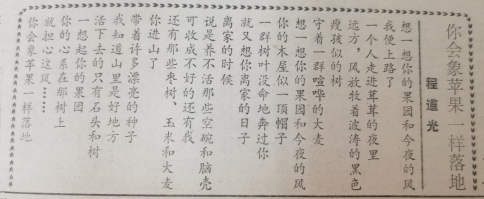 你会象苹果一样落地
程道光
想一想你的果园和今夜的风
我便上路了
一个人走进茸茸的夜里
远方,风放牧着波涛的黑色
瘦孩似的
守着一群喧哗的大麦
想一想你的果园和今夜的风
你的木屋似一顶帽子
一群树叶没命地奔过你
就又想你离家的日子
离家的时候
说是养不活那些空碗和脑壳
可收成不好的还有我
还有那些枣树、玉米和大麦
你进山了
带着许多漂亮的种子
我知道山里是好地方
活下去的只有石头和树
一想起你的果园
你的心系在那树上
就担心这风……
你会象苹果一样落地